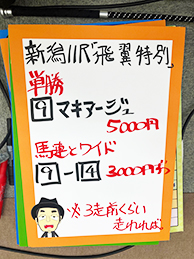 新潟11R「飛翼特別」
単勝
9 マキアージュ
5000円
馬連とワイド
9-14 3000円ずつ
※3走前くらい
走れれば。